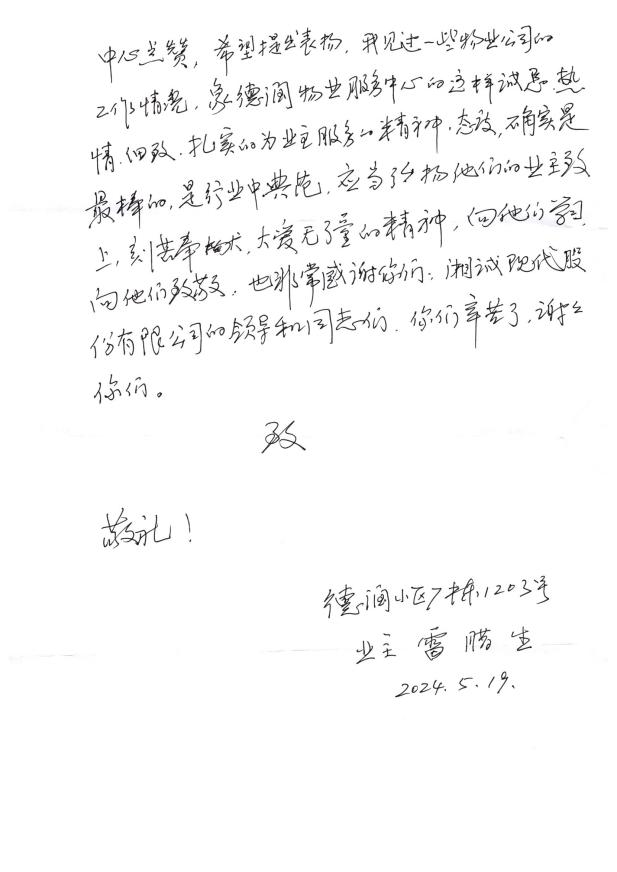 中心点赞，希望提出表扬，我见过一些物业公司的
工作情况，象德润物业服务中心的这样诚恳.热
情.细致.扎实的为业主服务的精神.态度，确实是
最棒的，是行业中典范，应当发扬他们的业主致
上，刻苦奉献，大爱无疆的精神，向他们学习.
向他们致敬.也非常感谢你们：湘诚现代股
份有限公司的领导和同志们.你们辛苦了，谢谢
你们。
致
敬礼！
德润小区7栋1203号
业主 雷腊生
2024.5.19.